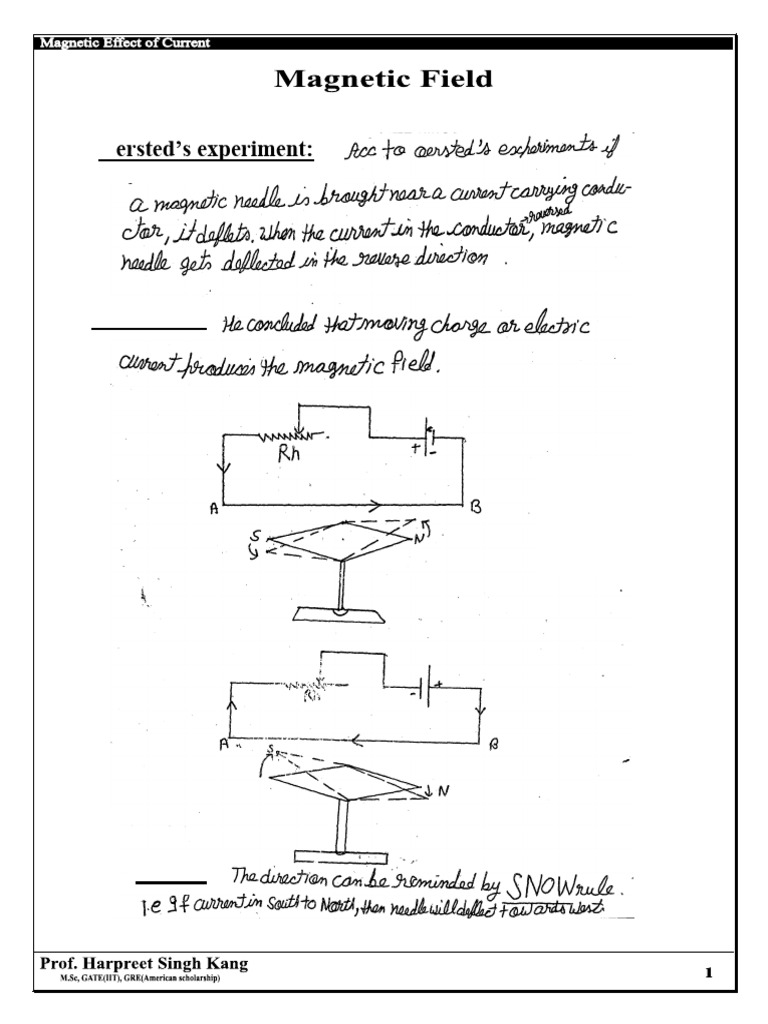 Magnetic Effect of Current
Magnetic Field
ersted's experiment: Acc to oersted's experiments if
a magnetic needle is brought near a current carrying condu-
ctor, it deflets. When the current in the conductor, reversed magnetic
needle gets deflected in the reverse direction.
He concluded that moving charge or electric
current produces the magnetic field.
Rh
+ -
A B
S N
Rh
- +
A B
S
N
The direction can be reminded by SNOW rule.
i.e If current in South to North, then needle will deflect towards west.
Prof. Harpreet Singh Kang
M.Sc, GATE(IIT), GRE(American scholarship)
1